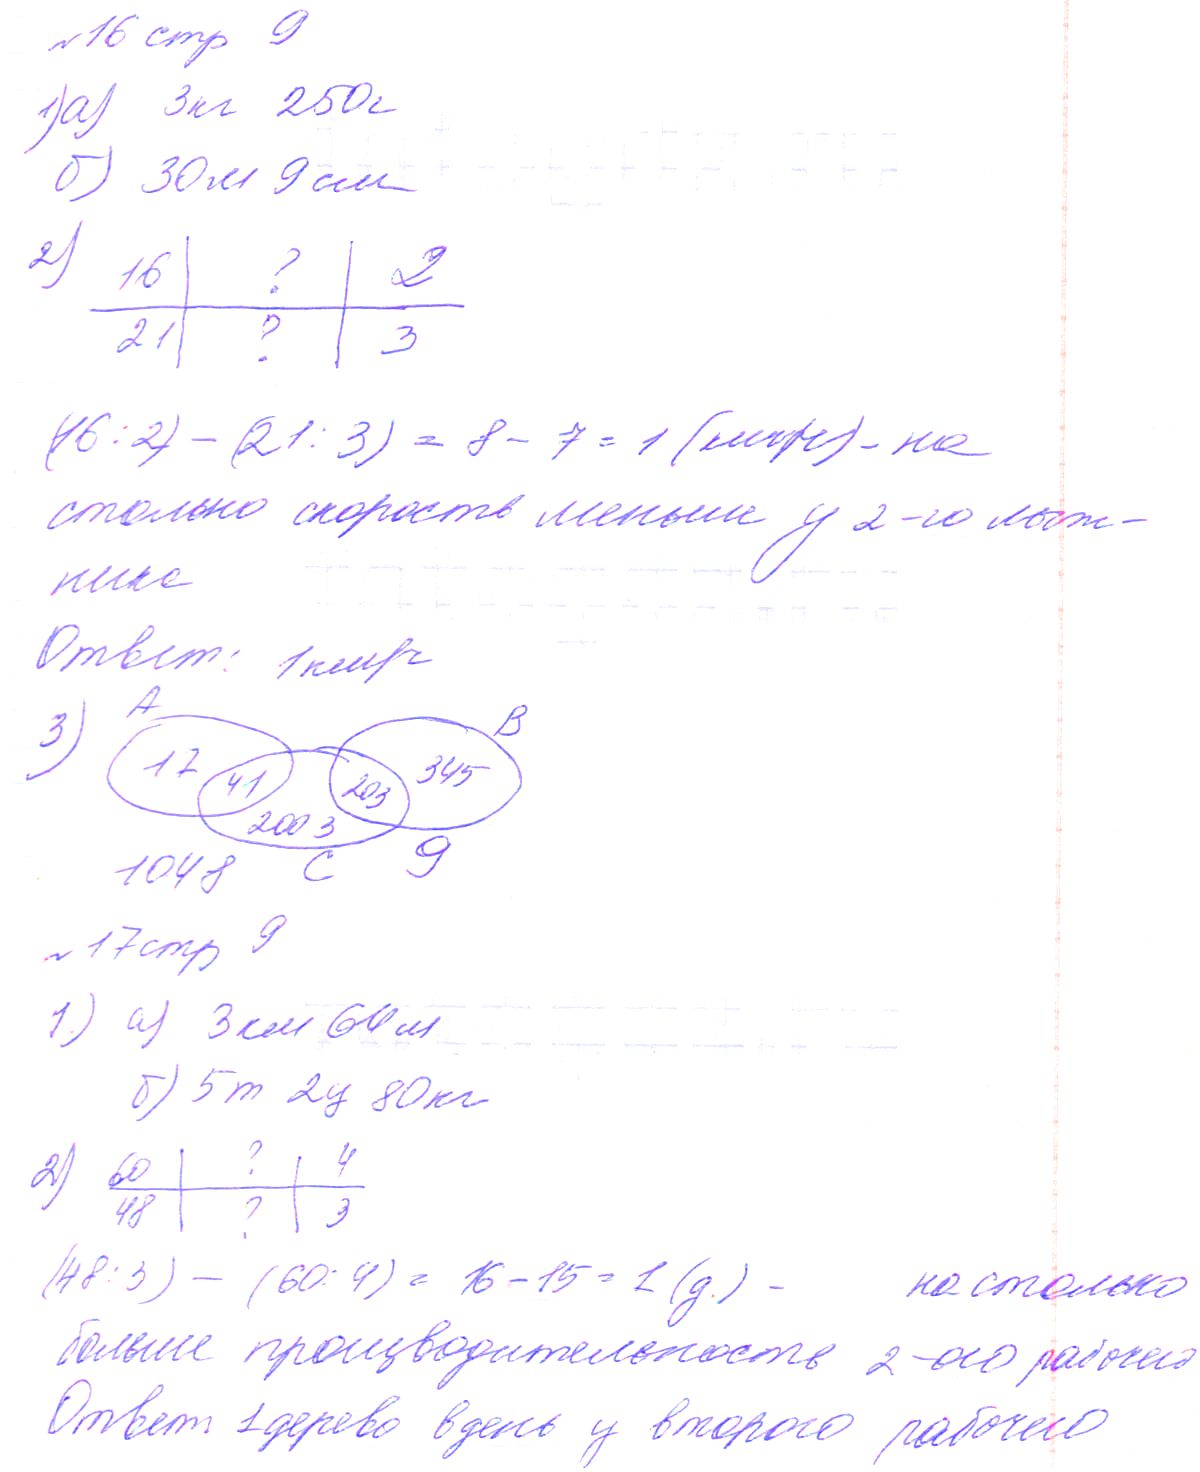 №16 стр 9
1) а) 3кг 250г
б) 30м 9см
2) 16 ? 2
21 ? 3
(16:2) - (21:3) = 8 - 7 = 1 (км/ч) - на
столько скорость меньше у 2-го лыж-
ника
Ответ: 1км/ч
3) A B
17 41 203 345
2003
1048 C 9
№17 стр 9
1) а) 3км 64м
б) 5т 2ц 80кг
2) 60 ? 4
48 ? 3
(48:3) - (60:4) = 16-15=1 (д.) - на столько
больше производительность 2-ого рабочего
Ответ 1дерево в день у второго рабочего